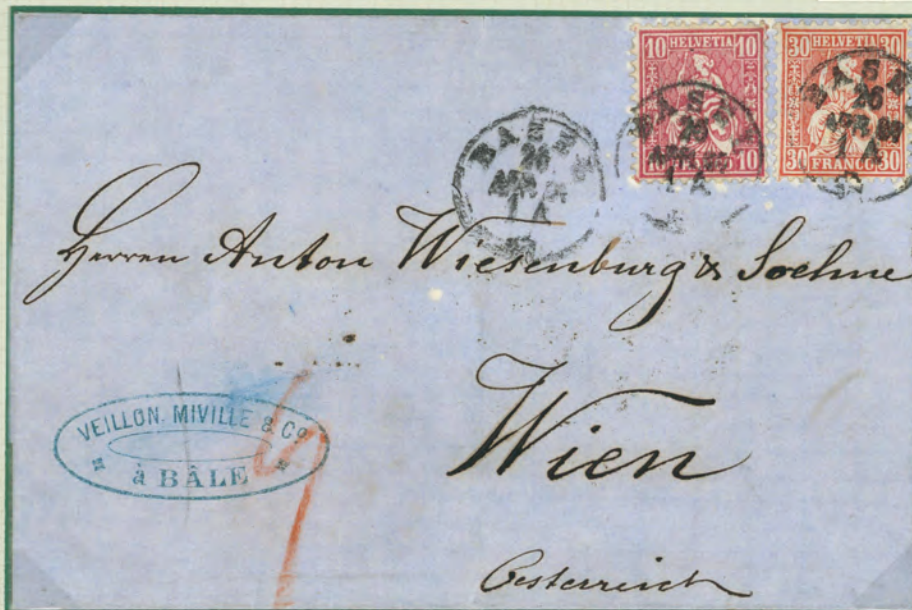 10 HELVETIA 10
10 FRANCO 10
30 HELVETIA 30
30 FRANCO 30
BASEL
26
APR
1 A
BASEL
26
APR
1 A
BASEL
26
APR 67
1 A
Herren Anton Wiesenburg & Soehne
Wien
Oesterreich
VEILLON. MIVILLE & Co
à BÂLE